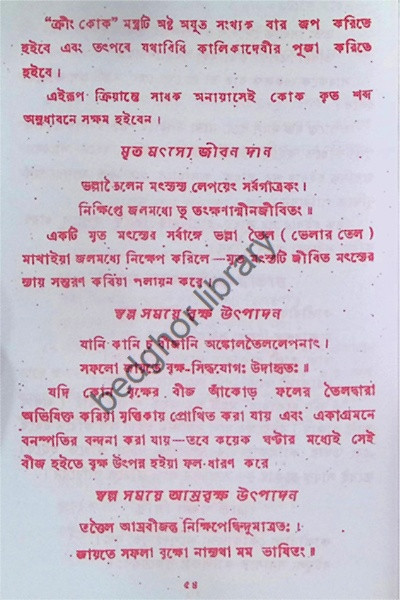 “ক্রীং কোক” মন্ত্রটি অষ্ট অযুত সংখ্যক বার জপ করিতে
হইবে এবং তৎপরে যথাবিধি কালিকাদেবীর পূজা করিতে
হইবে।
এইরূপ ক্রিয়ান্তে সাধক অনায়াসেই কোক কৃত শব্দ
অনুধাবনে সক্ষম হইবেন।
মৃত মৎস্যে জীবন দান
ভল্লাতৈলেন মৎস্তস্য লেপয়েৎ সর্বগাত্রকং।
নিক্ষিপ্তে জলমধ্যে তু তৎক্ষণান্মীনজীবিতঃ॥
একটি মৃত মৎস্যের সর্বাঙ্গে ভল্লা তৈল ( ভেলার তেল )
মাখাইয়া জলমধ্যে নিক্ষেপ করিলে—মৃত মৎস্যটি জীবিত মৎস্যের
ন্যায় সন্তরণ করিয়া পলায়ন করে।
স্বল্প সময়ে বৃক্ষ উৎপাদন
যানি কানি চ বীজানি অঙ্কোলতৈললেপনাৎ।
সফলো জায়তে বৃক্ষ-সিদ্ধযোগ: উদাহৃত:॥
যদি কোন বৃক্ষের বীজ আঁকোড় ফলের তৈলদ্বারা
অভিষিক্ত করিয়া মৃত্তিকায় প্রোথিত করা যায় এবং একাগ্রমনে
বনস্পতির বন্দনা করা যায়—তবে কয়েক ঘণ্টার মধ্যেই সেই
বীজ হইতে বৃক্ষ উৎপন্ন হইয়া ফল-ধারণ করে
স্বল্প সময়ে আম্রবৃক্ষ উৎপাদন
তত্তৈল আম্রবীজন্তু নিক্ষিপেদ্বিন্দুমাত্রত:।
জায়তে সফলা বৃক্ষো নান্যথা মম ভাষিতং॥
৫৪
bedghor.library